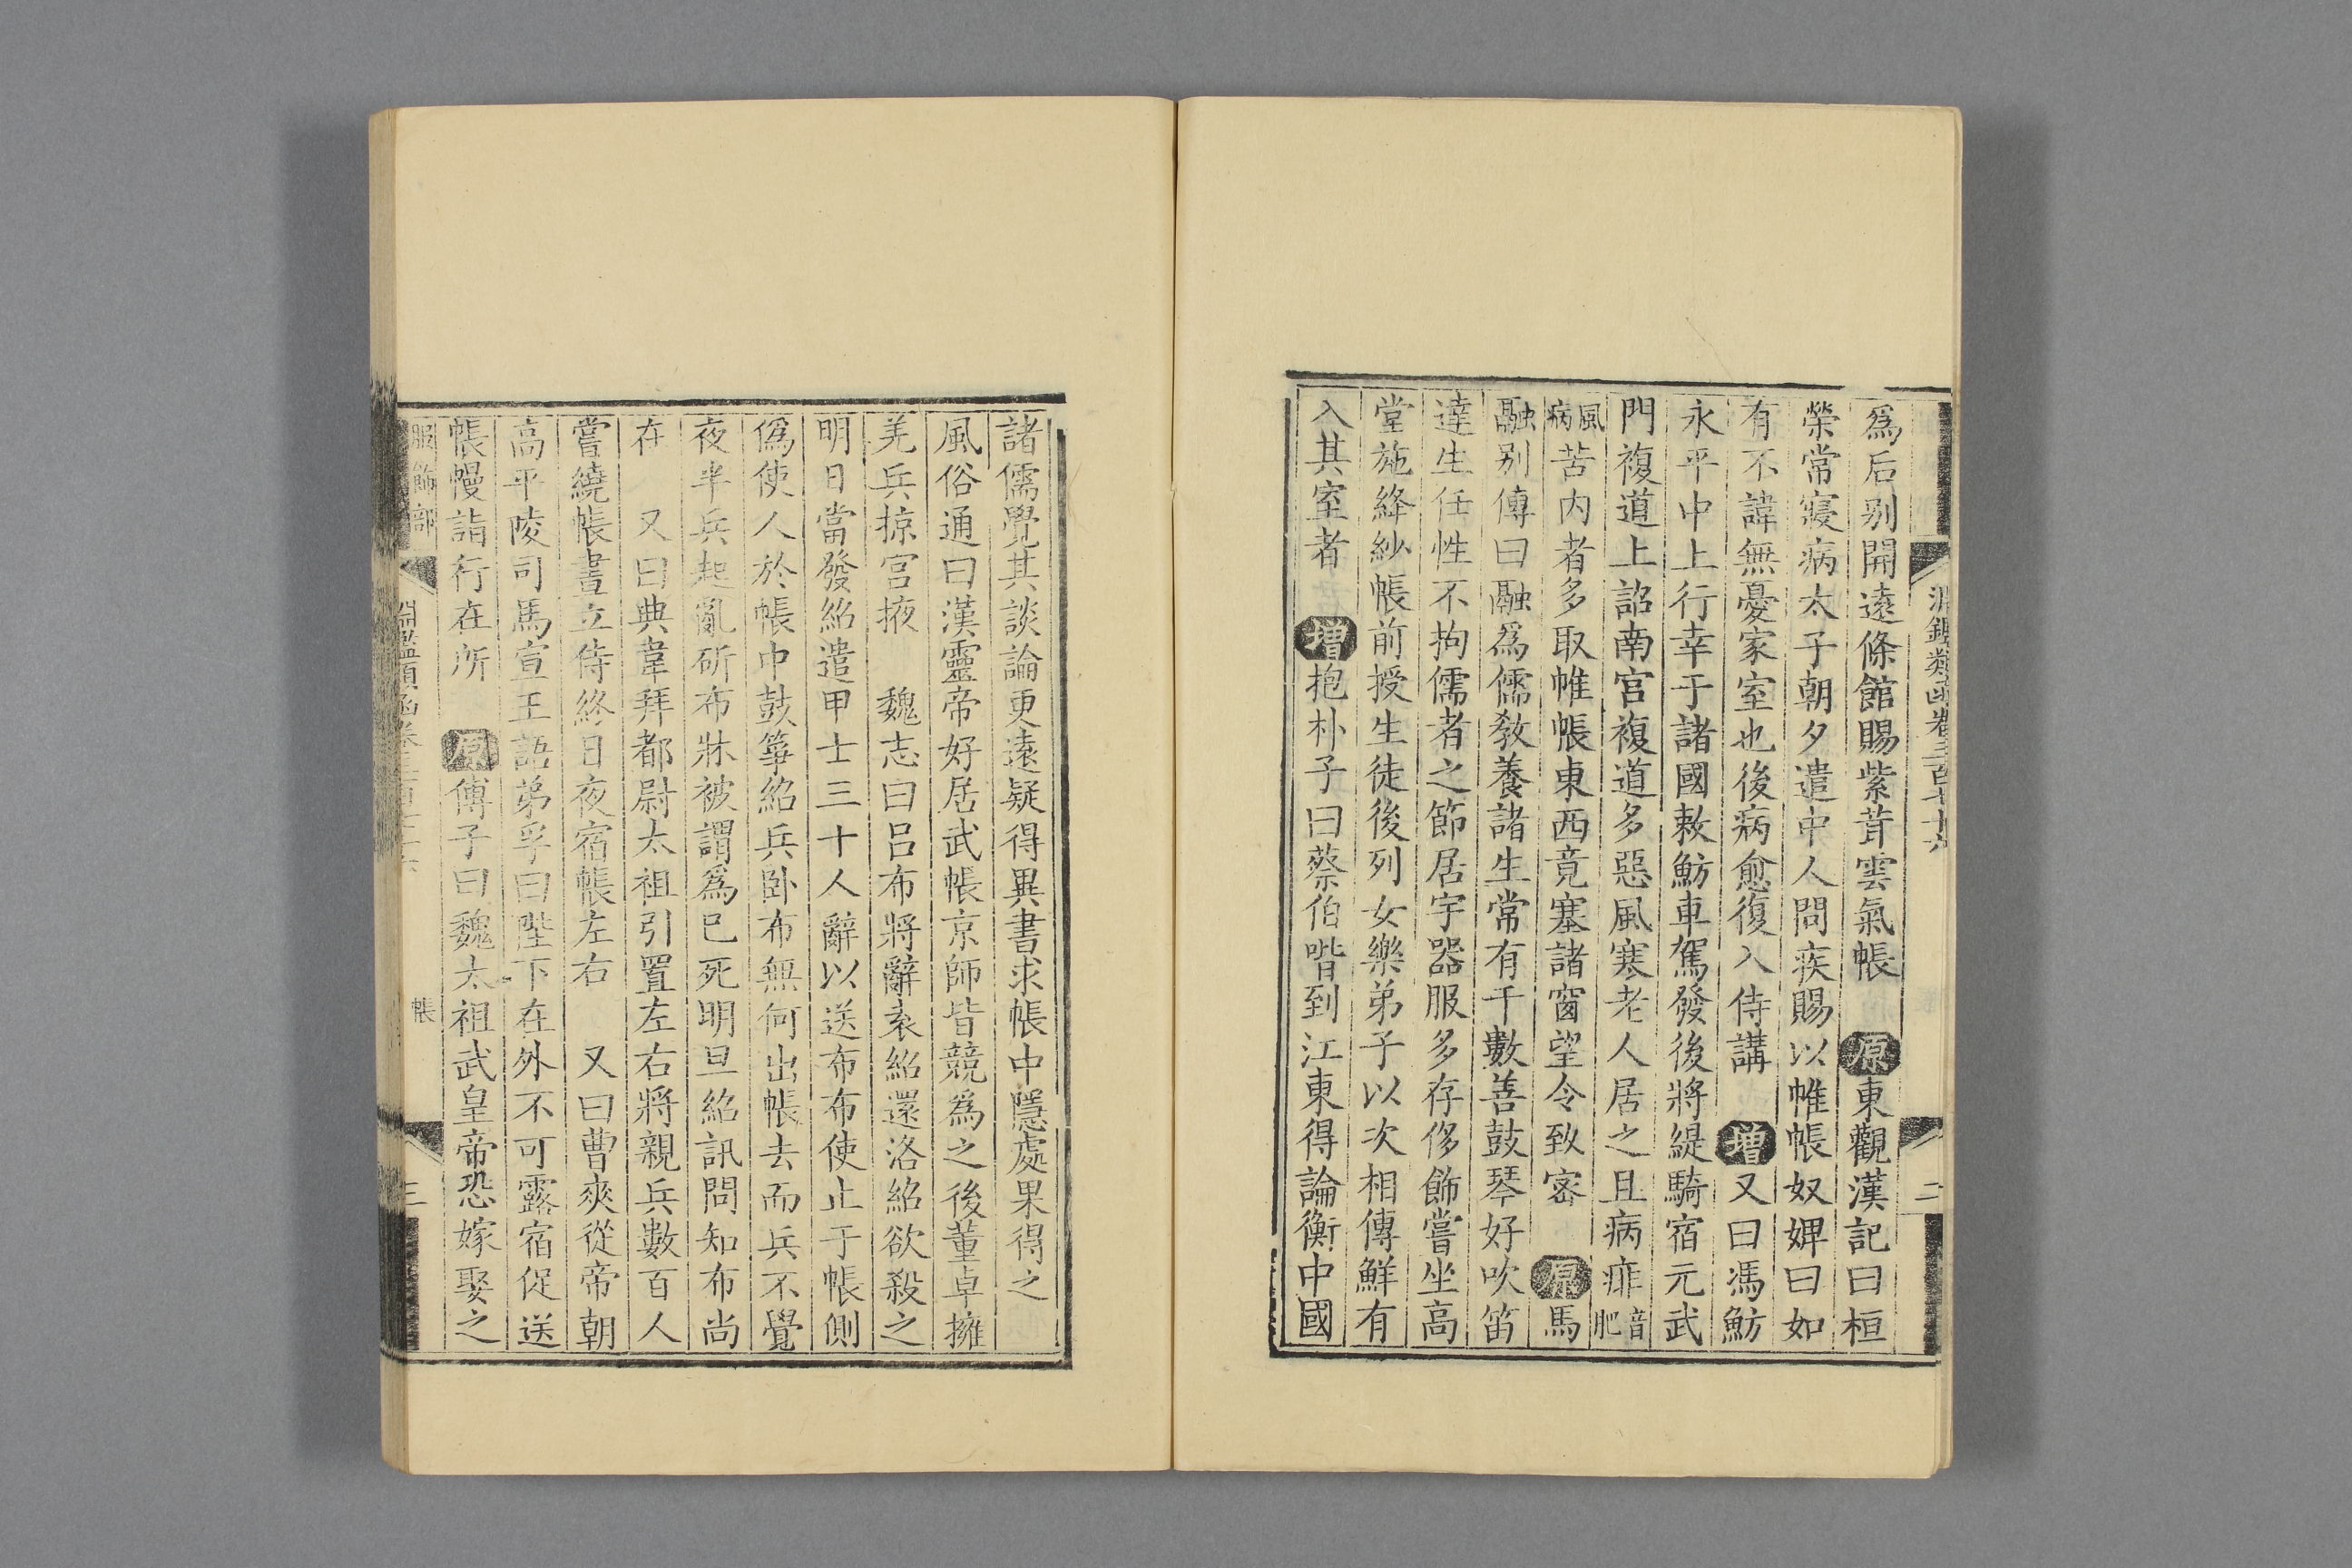 淵鑑類函卷三百七十六
二
爲后别開遠條館賜紫茸雲氣帳 原東觀漢記曰桓
榮常寢病太子朝夕遣中人問疾賜以帷帳奴婢曰如
有不諱無憂家室也後病愈復入侍講 增又曰馮魴
永平中上行幸于諸國敕魴車駕發後將緹騎宿元武
門複道上詔南宫複道多惡風寒老人居之且病痱音肥
風病苦内者多取帷帳東西竟塞諸窗望令致密 原馬
融别傳曰融爲儒教養諸生常有千數善鼓琴好吹笛
達生任性不拘儒者之節居宇器服多存侈飾嘗坐高
堂施絳紗帳前授生徒後列女樂弟子以次相傳鮮有
入其室者 增抱朴子曰蔡伯喈到江東得論衡中國
諸儒覺其談論更遠疑得異書求帳中隱處果得之
風俗通曰漢靈帝好居武帳京師皆競爲之後董卓擁
羌兵掠宫掖 魏志曰吕布將辭袁紹還洛紹欲殺之
明日當發紹遣甲士三十人辭以送布布使止于帳側
僞使人於帳中鼓箏紹兵卧布無何出帳去而兵不覺
夜半兵起亂斫布牀被謂爲已死明旦紹訊問知布尚
在 又曰典韋拜都尉太祖引置左右將親兵數百人
嘗繞帳晝立侍終日夜宿帳左右 又曰曹爽從帝朝
高平陵司馬宣王語弟孚曰陛下在外不可露宿促送
帳幔詣行在所 原傅子曰魏太祖武皇帝恐嫁娶之
服飾部
淵鑑類函卷三百七十六
帳
三